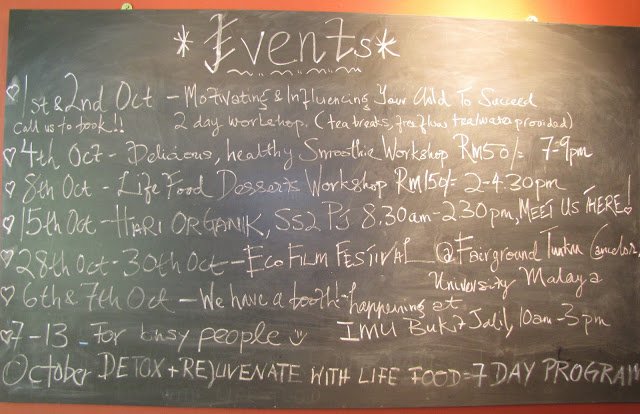 *Events*
♡1st & 2nd Oct - Motivating & Influencing Your Child To Succeed
Call us to book!! 2 day workshop. (tea breaks, free flow tea/water provided)
♡4th Oct - Delicious, healthy Smoothie Workshop RM50/- 7-9pm
♡8th Oct - Life Food Desserts Workshop RM150/- 2-4.30pm
♡15th Oct - HARI ORGANIK, SS2 PJ 8.30am-2.30pm, MEET US THERE!
♡28th Oct - 30th Oct - Eco Film Festival @ Fairground Tunku
University Malaya
♡6th & 7th Oct - We have a booth! - happening at
IMU Bukit Jalil, 10am-3pm
♡7-13 - For busy people
October DETOX + REJUVENATE WITH LIFE FOOD = 7 DAY PROGRAM